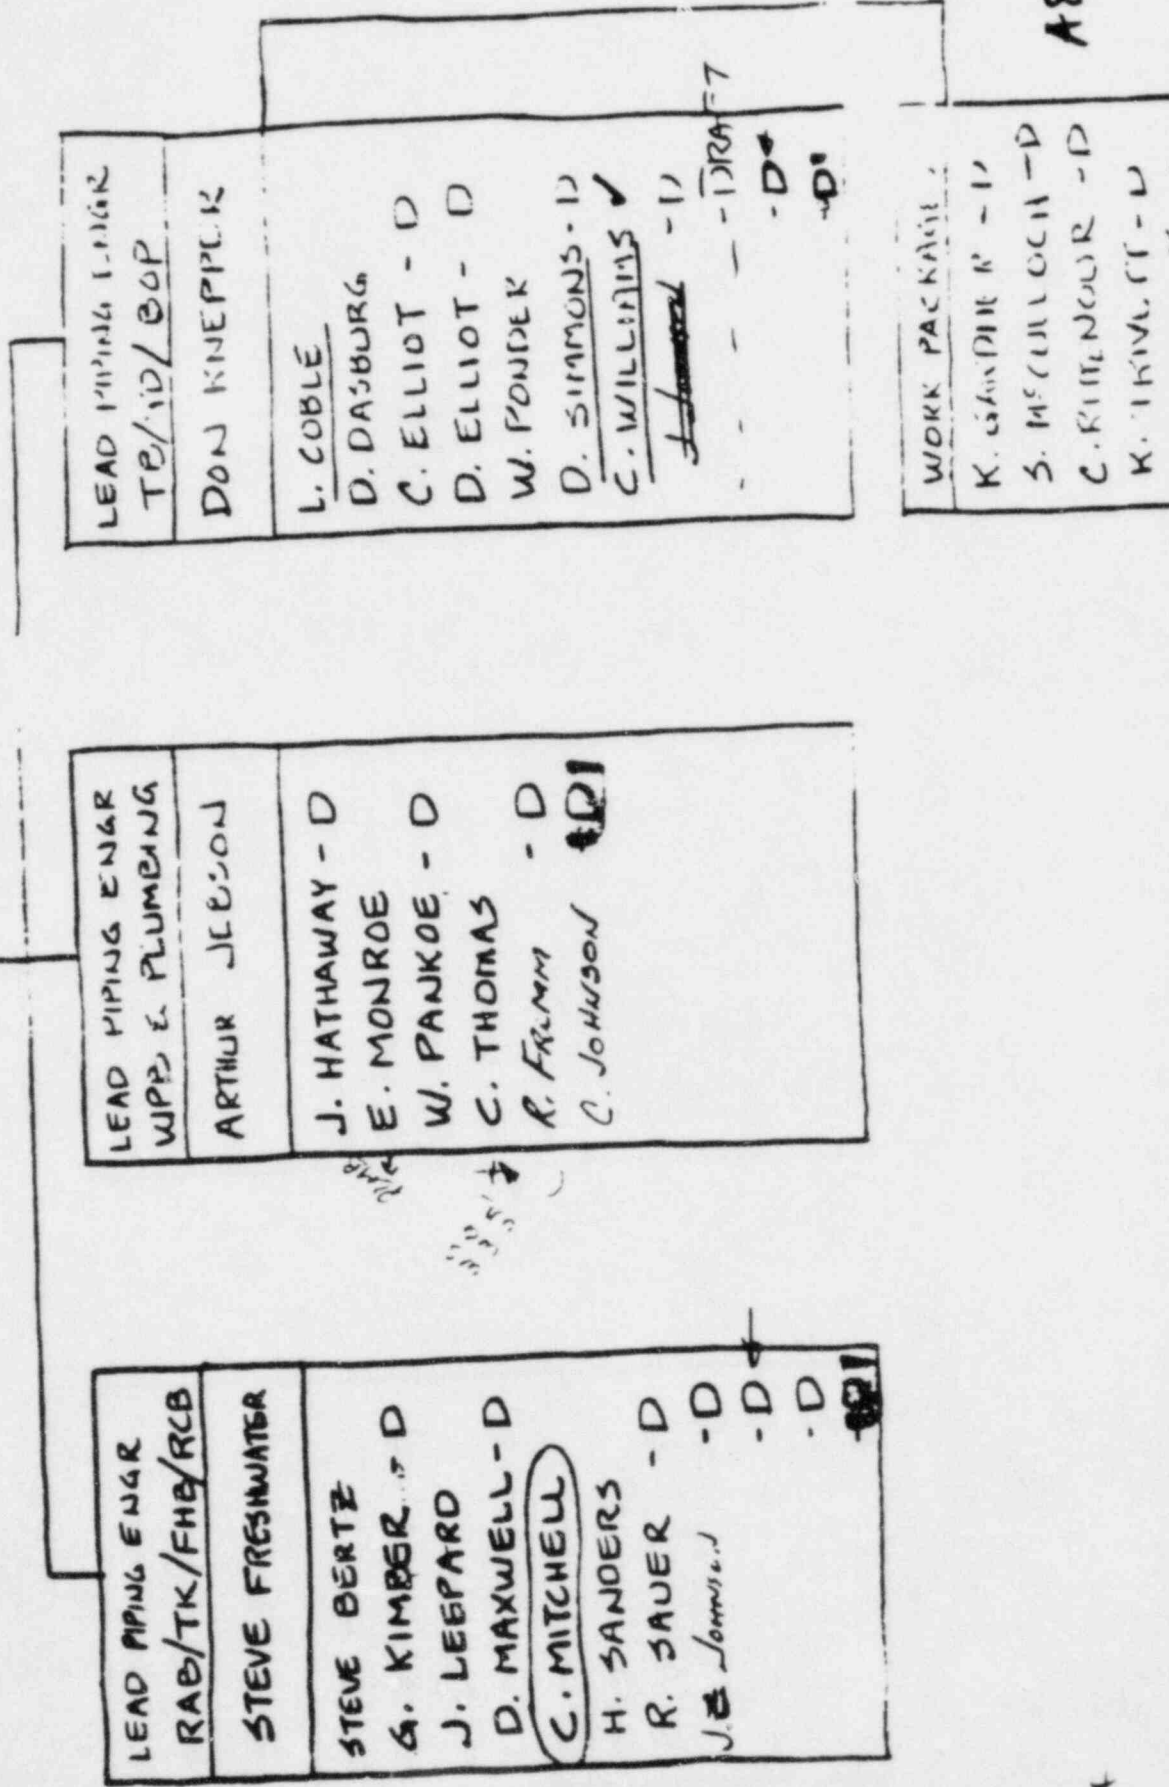 LEAD PIPING ENGR
RAB/TK/FHB/RCB
STEVE FRESHWATER
STEVE BERTZ
G. KIMBER - D
J. LEEPARD
D. MAXWELL - D
C. MITCHELL
H. SANDERS
R. SAUER - D
J. JOHNSON - D
- D
- D
LEAD PIPING ENGR
WPB & PLUMBING
ARTHUR
J. HATHAWAY - D
E. MONROE
W. PANKOE - D
C. THOMAS
R. - D
C. JOHNSON
LEAD PIPING ENGR
/BOP
DON KNEPPER
L. COBLE
D. DASBURG
C. ELLIOT - D
D. ELLIOT - D
W. PONDER
D. SIMMONS - D
C. WILLIAMS ✓
- D
- DRAFT
- D
- D
WORK PACKAGE
K. - D
S. McCULLOCH - D
C. RITENOUR - D
K. - D